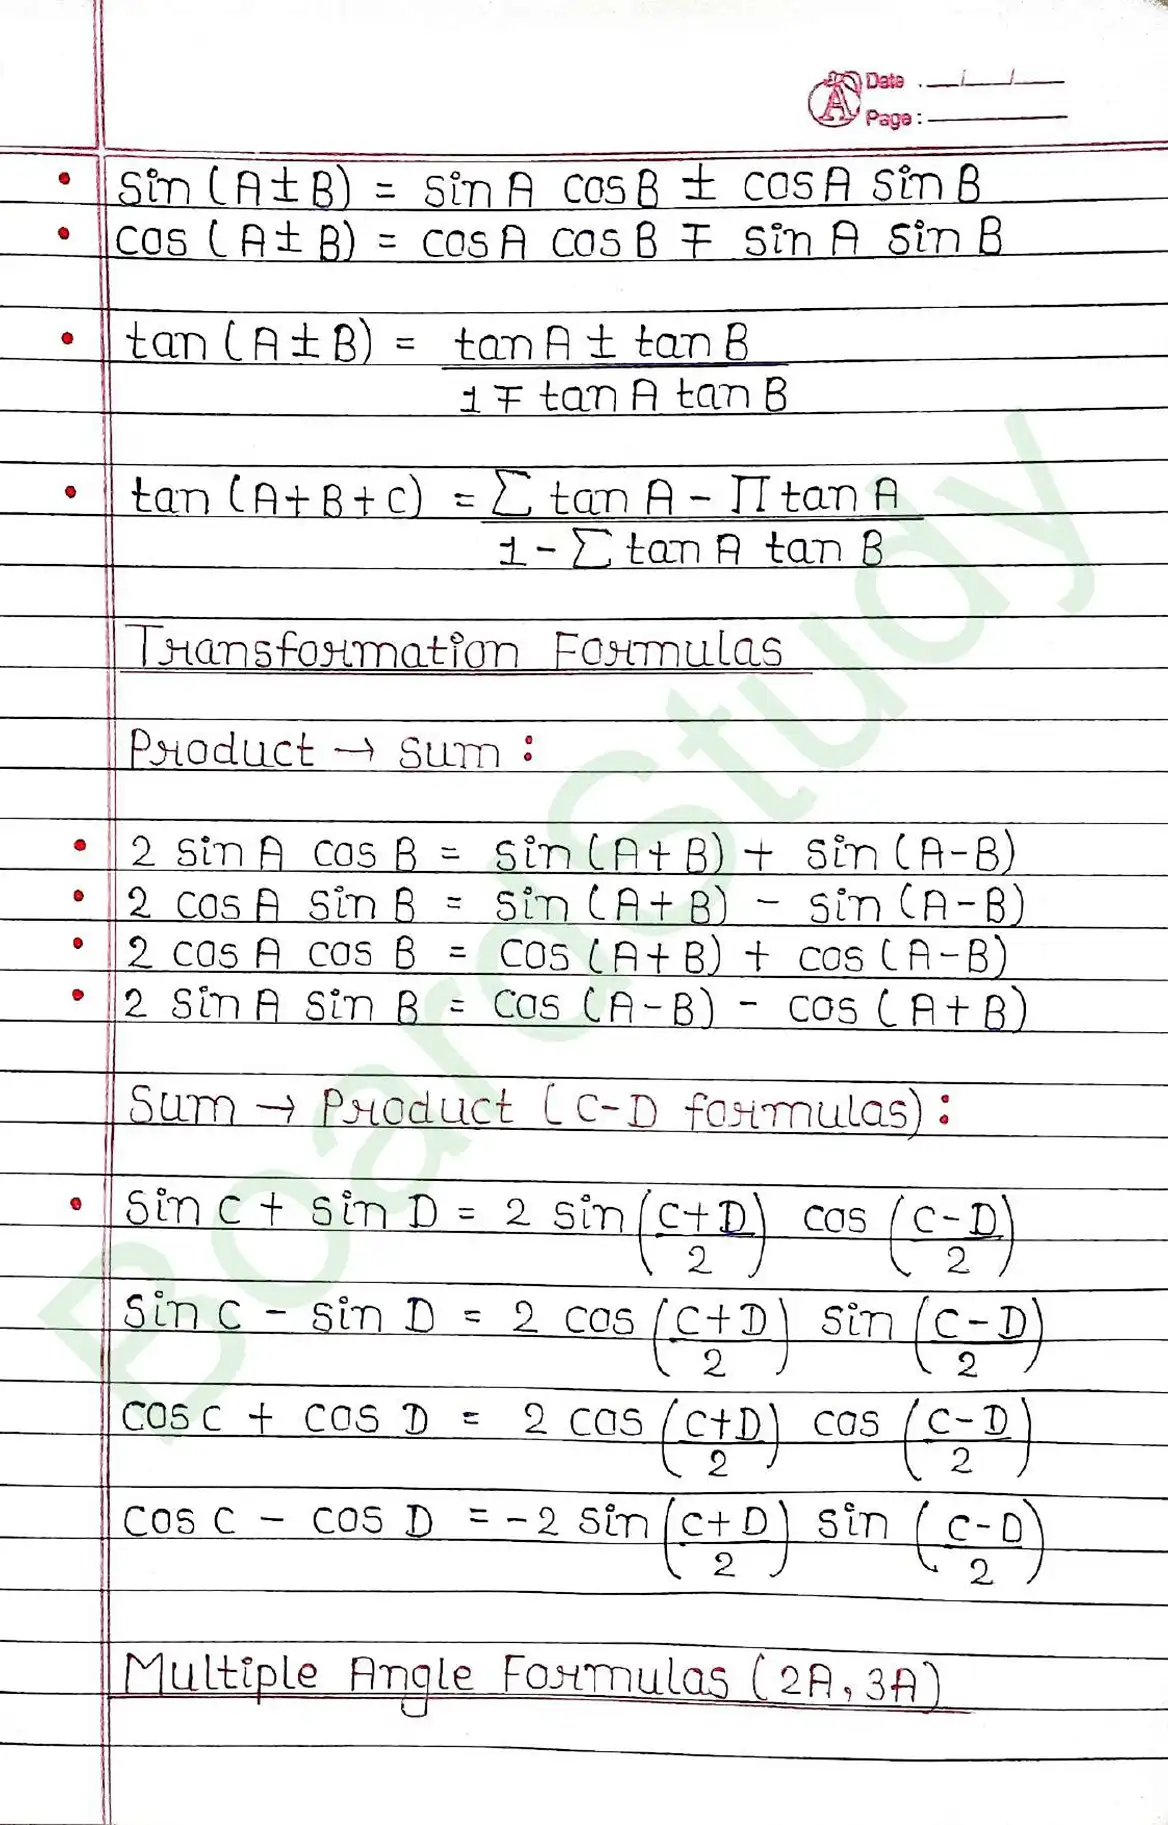 Date : __/__/__
Page :
• sin (A ± B) = sin A cos B ± cos A sin B
• cos (A ± B) = cos A cos B ∓ sin A sin B
• tan (A ± B) = tan A ± tan B
1 ∓ tan A tan B
• tan (A + B + C) = ∑ tan A - ∏ tan A
1 - ∑ tan A tan B
Transformation Formulas
Product → Sum :
• 2 sin A cos B = sin (A + B) + sin (A - B)
• 2 cos A sin B = sin (A + B) - sin (A - B)
• 2 cos A cos B = cos (A + B) + cos (A - B)
• 2 sin A sin B = cos (A - B) - cos (A + B)
Sum → Product (C-D formulas) :
• sin C + sin D = 2 sin (C+D/2) cos (C-D/2)
sin C - sin D = 2 cos (C+D/2) sin (C-D/2)
cos C + cos D = 2 cos (C+D/2) cos (C-D/2)
cos C - cos D = -2 sin (C+D/2) sin (C-D/2)
Multiple Angle Formulas (2A, 3A)
BoardStudy